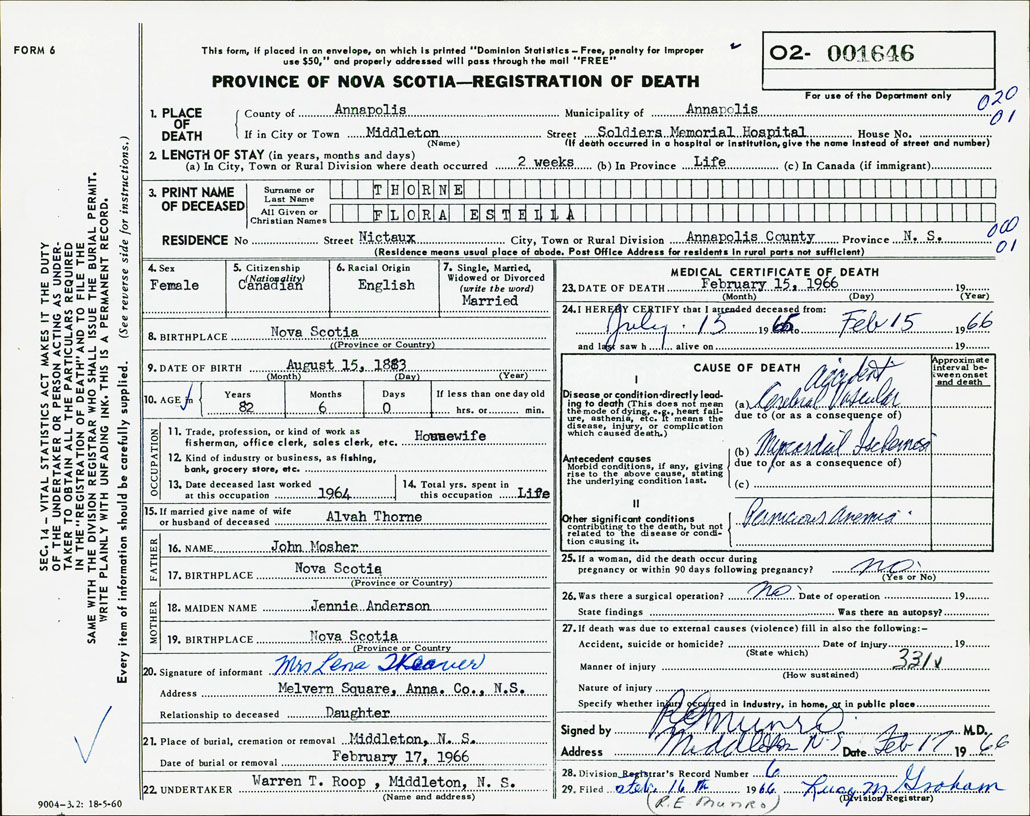 FORM 6
This form, if placed in an envelope, on which is printed "Dominion Statistics – Free, penalty for improper
use $50," and properly addressed will pass through the mail "FREE"
PROVINCE OF NOVA SCOTIA—REGISTRATION OF DEATH
02- 001646
For use of the Department only
020
01
1. PLACE OF DEATH County of Annapolis Municipality of Annapolis
If in City or Town Middleton Street Soldiers Memorial Hospital House No.
(Name) (If death occurred in a hospital or institution, give the name instead of street and number)
2. LENGTH OF STAY (in years, months and days)
(a) In City, Town or Rural Division where death occurred 2 weeks (b) In Province Life (c) In Canada (if immigrant)
3. PRINT NAME OF DECEASED Surname or Last Name THORNE
All Given or Christian Names FLORA ESTELLA
000
01
RESIDENCE No Street Nictaux City, Town or Rural Division Annapolis County Province N. S.
(Residence means usual place of abode. Post Office Address for residents in rural parts not sufficient)
4. Sex
Female
5. Citizenship
(Nationality)
Canadian
6. Racial Origin
English
7. Single, Married,
Widowed or Divorced
(write the word)
Married
8. BIRTHPLACE Nova Scotia
(Province or Country)
9. DATE OF BIRTH August 15, 1883
(Month) (Day) (Year)
10. AGE in Years Months Days If less than one day old
82 6 0 hrs. or min.
OCCUPATION
11. Trade, profession, or kind of work as
fisherman, office clerk, sales clerk, etc. Housewife
12. Kind of industry or business, as fishing,
bank, grocery store, etc.
13. Date deceased last worked
at this occupation 1964
14. Total yrs. spent in
this occupation Life
15. If married give name of wife
or husband of deceased Alvah Thorne
FATHER
16. NAME John Mosher
17. BIRTHPLACE Nova Scotia
(Province or Country)
MOTHER
18. MAIDEN NAME Jennie Anderson
19. BIRTHPLACE Nova Scotia
(Province or Country)
20. Signature of informant Mrs Lena
Address Melvern Square, Anna. Co., N.S.
Relationship to deceased Daughter
21. Place of burial, cremation or removal Middleton, N. S.
Date of burial or removal February 17, 1966
22. UNDERTAKER Warren T. Roop , Middleton, N. S.
(Name and address)
MEDICAL CERTIFICATE OF DEATH
23. DATE OF DEATH February 15, 1966 19
(Month) (Day) (Year)
24. I HEREBY CERTIFY that I attended deceased from:
July 15 1965 Feb 15 1966
and last saw h alive on 19
CAUSE OF DEATH
Approximate
interval be-
tween onset
and death
I
Disease or condition directly lead-
ing to death (This does not mean
the mode of dying, e.g., heart fail-
ure, asthenia, etc. It means the
disease, injury, or complication
which caused death.)
Accident
(a) Cerebral Vascular
due to (or as a consequence of)
Antecedent causes
Morbid conditions, if any, giving
rise to the above cause, stating
the underlying condition last.
(b) Myocardial Ischemia
due to (or as a consequence of)
(c)
II
Other significant conditions
contributing to the death, but not
related to the disease or condi-
tion causing it.
Pernicious anemia
25. If a woman, did the death occur during
pregnancy or within 90 days following pregnancy? no
(Yes or No)
26. Was there a surgical operation? no Date of operation 19
State findings Was there an autopsy?
27. If death was due to external causes (violence) fill in also the following:–
Accident, suicide or homicide? Date of injury 19
(State which)
331
Manner of injury
(How sustained)
Nature of injury
Specify whether injury occurred in industry, in home, or in public place
Signed by R E Munro M.D.
Address Middleton N S Date Feb 17 1966
28. Division Registrar's Record Number 6
29. Filed Feb. 16th 1966 Lucy M Graham
(R.E Munro) (Division Registrar)
SEC. 14 – VITAL STATISTICS ACT MAKES IT THE DUTY
OF THE UNDERTAKER OR PERSON ACTING AS UNDER-
TAKER TO OBTAIN ALL THE PARTICULARS REQUIRED
IN THE "REGISTRATION OF DEATH" AND TO FILE THE
SAME WITH THE DIVISION REGISTRAR WHO SHALL ISSUE THE BURIAL PERMIT.
WRITE PLAINLY WITH UNFADING INK. THIS IS A PERMANENT RECORD.
Every item of information should be carefully supplied. (See reverse side for instructions.)
9004–3.2: 18-5-60